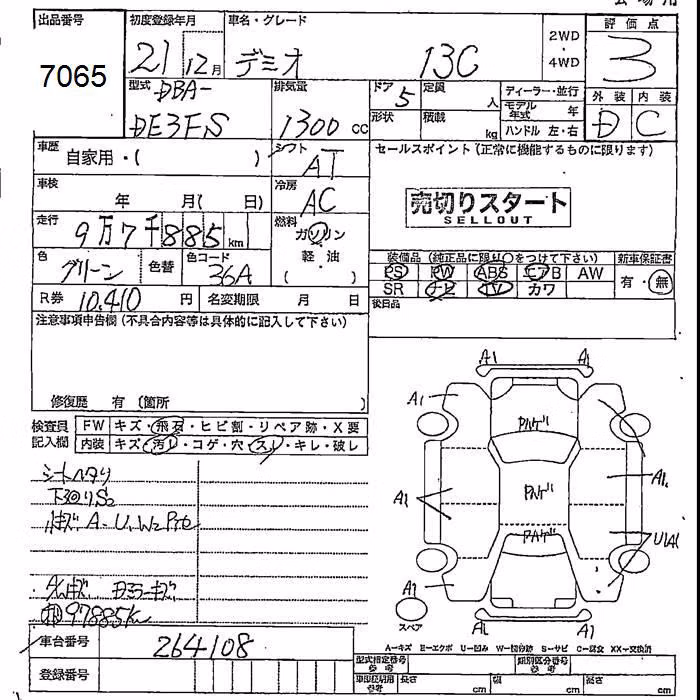 出品番号
7065
初度登録年月
21 12月
車名・グレード
デミオ 13C
2WD
・
4WD
評価点
3
外装 内装
D C
型式
DBA-
DE3FS
排気量
1300 cc
ドア 5
形状
定員 人
積載 kg
ディーラー・並行
モデル年式 年
ハンドル 左・右
車歴
自家用・( )
シフト
AT
セールスポイント(正常に機能するものに限ります)
売切りスタート
SELLOUT
車検
年 月( 日)
冷房
AC
走行
9万7千885km
燃料
ガソリン
軽・油
( )
色
グリーン
色替
色コード
36A
装備品(純正品に限り○をつけて下さい)
新車保証書
PS PW ABS エアB AW
SR ナビ TV カワ
有・無
R券 10,410 円
名変期限 月 日
後日品
注意事項申告欄(不具合内容等は具体的に記入して下さい)
修復歴 有(箇所 )
検査員
記入欄
FW キズ・飛石・ヒビ割・リペア跡・X要
内装 キズ・汚レ・コゲ・穴・スレ・キレ・破レ
シートヘタリ
下廻りS2
97885km
車台番号
264108
登録番号
A1 A1
A1
A1
A1
A1
U1A1
A1 A1
スペア
A-キズ E-エクボ U-凹み W-補修跡 S-サビ C-腐食 XX-交換済
型式指定番号
参考
類別区分番号
参考
車両証明用
参考
長さ cm
幅 cm
高さ cm